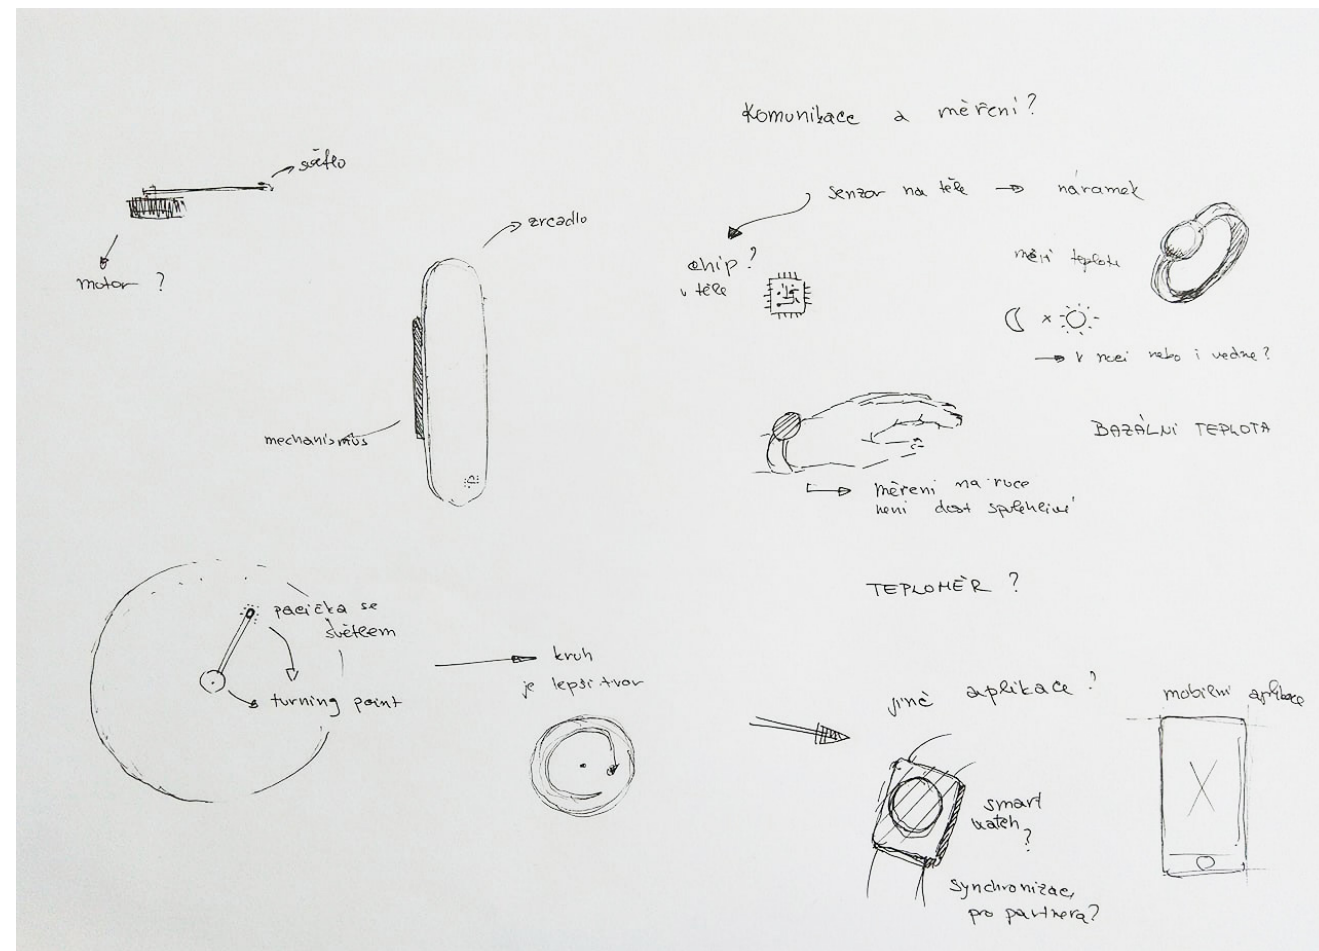 světlo
motor ?
zrcadlo
mechanismus
pacička se
světlem
turning point
kruh
je lepší tvar
Komunikace a měření?
senzor na těle → náramek
chip?
v těle
měří teplotu
x
→ v noci nebo i ve dne?
BAZÁLNÍ TEPLOTA
měření na ruce
není dost spolehlivé
TEPLOMĚR ?
jiné aplikace ?
mobilní aplikace
smart
watch
?
synchronizace
pro partnera?